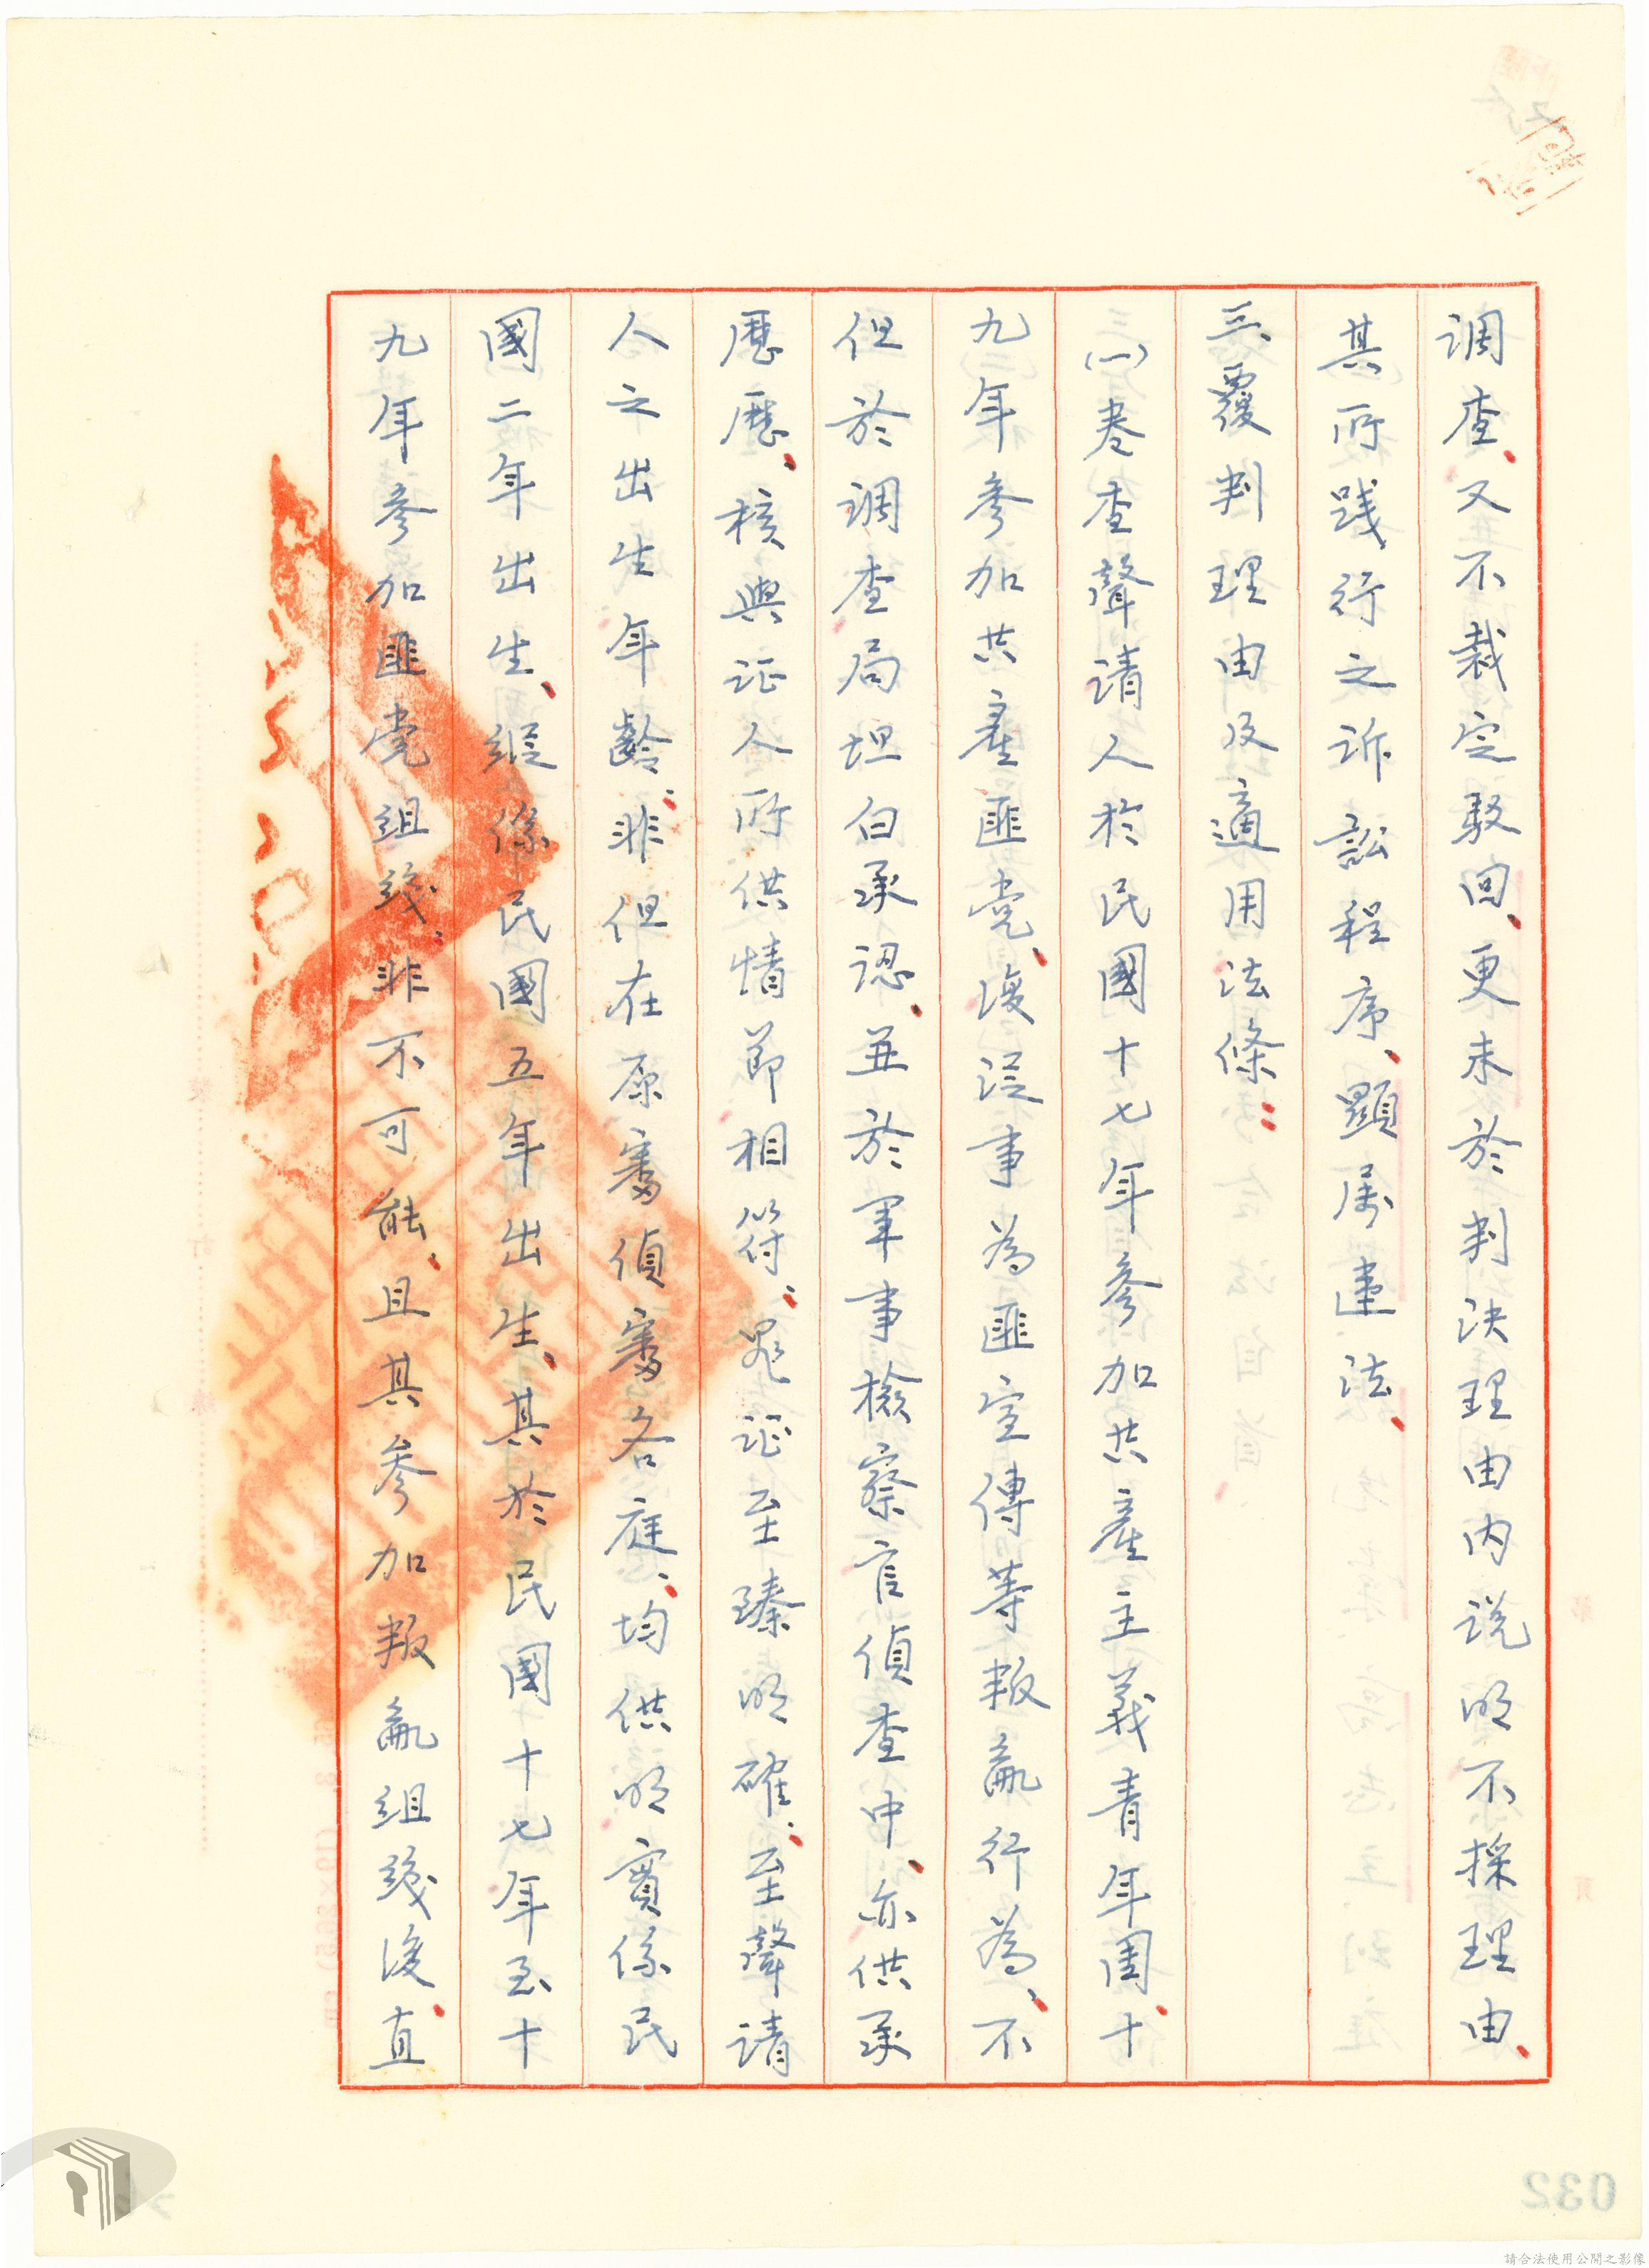 调查、又不裁定駁回、更未於判決理由內说明不採理由、
其所践行之诉訟程序、顯屬違法、
三、覆判理由及適用法條：
(一)卷查聲请人於民國十七年參加共產主義青年團、十
九年參加共產匪党、復從事為匪宣傳等叛亂行為、不
但於调查局坦白承認、並於軍事檢察官偵查中、亦供承
歷歷、核與证人所供情節相符、罪证至臻明確、至聲请
人之出生年齡、非但在原審偵審各庭、均供明實係民
國二年出生、縱係民國五年出生、其於民國十七年至十
九年參加匪党組織、非不可能、且其參加叛亂組織後、直
032
請合法使用公開之影像